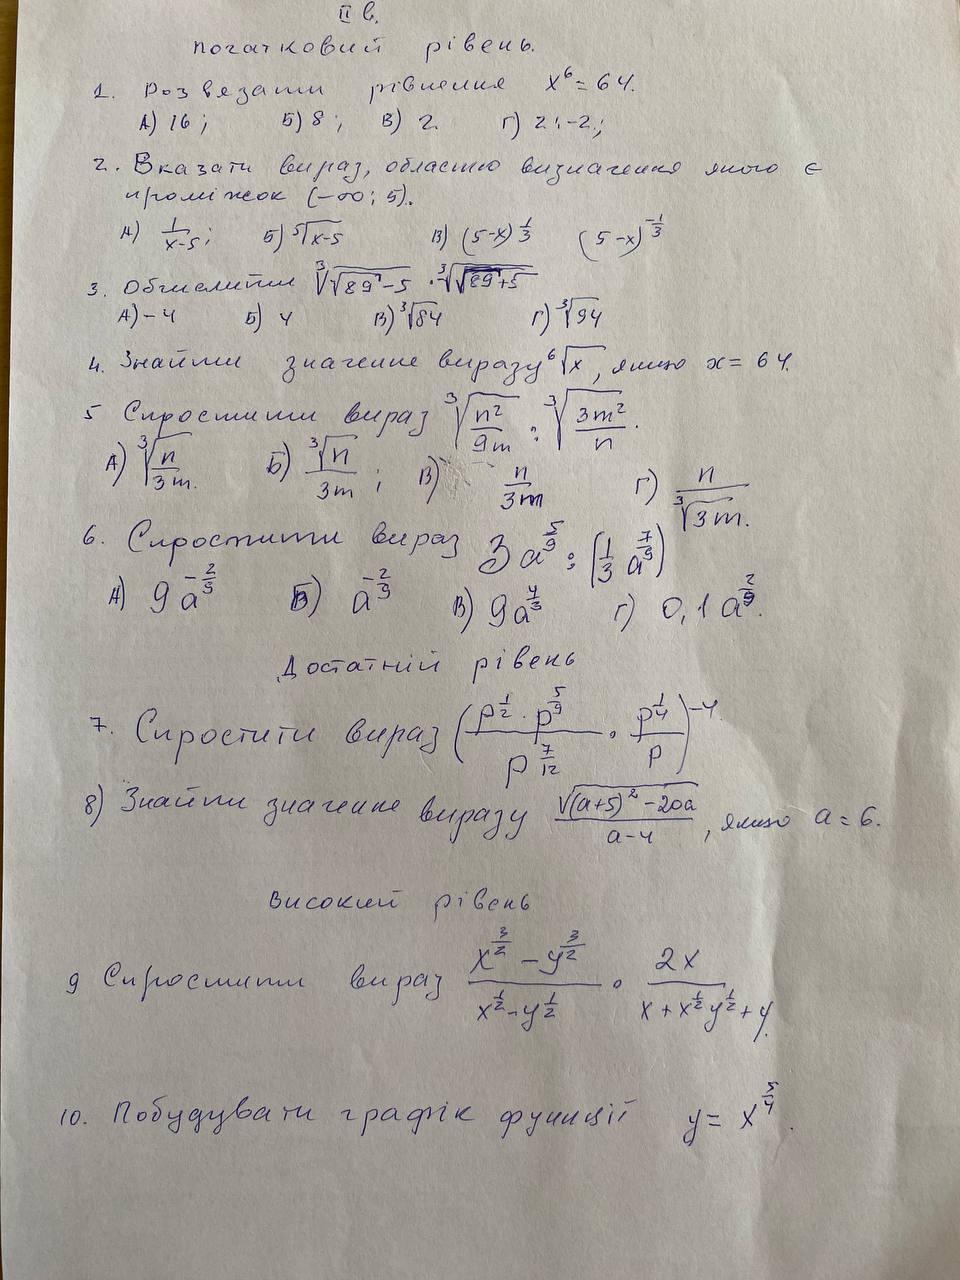 II в.
Початковий рівень.
1. Розвязати рівнення x⁶ = 64.
А) 16; Б) 8; В) 2. Г) 2; -2;
2. Вказати вираз, областю визначення якого є
проміжок (-∞; 5).
А) 1/(x-5); Б) ⁵√(x-5) В) (5-x)^(1/3) (5-x)^(-1/3)
3. Обчислити ³√(√89 - 5) · ³√(√89 + 5)
А) -4 Б) 4 В) ³√84 Г) ³√94
4. Знайти значення виразу ⁶√x, якщо x = 64.
5 Спростити вираз ³√(n²/9m) : ³√(3m²/n).
А) ³√(n/3m). Б) ³√n/3m; В) n/3m Г) n/³√3m.
6. Спростити вираз 3a^(5/9) : (1/3 a^(7/9))
А) 9a^(-2/9) Б) a^(-2/9) В) 9a^(4/3) Г) 0,1a^(2/9).
Достатній рівень
7. Спростити вираз ((p^(1/2) · p^(5/9))/p^(7/12) · p^(1/4)/p)^(-4).
8) Знайти значення виразу √((a+5)² - 20a)/(a-4), якщо a = 6.
Високий рівень
9 Спростити вираз (x^(3/2) - y^(3/2))/(x^(1/2) - y^(1/2)) · 2x/(x + x^(1/2)y^(1/2) + y).
10. Побудувати графік функції y = x^(5/4).